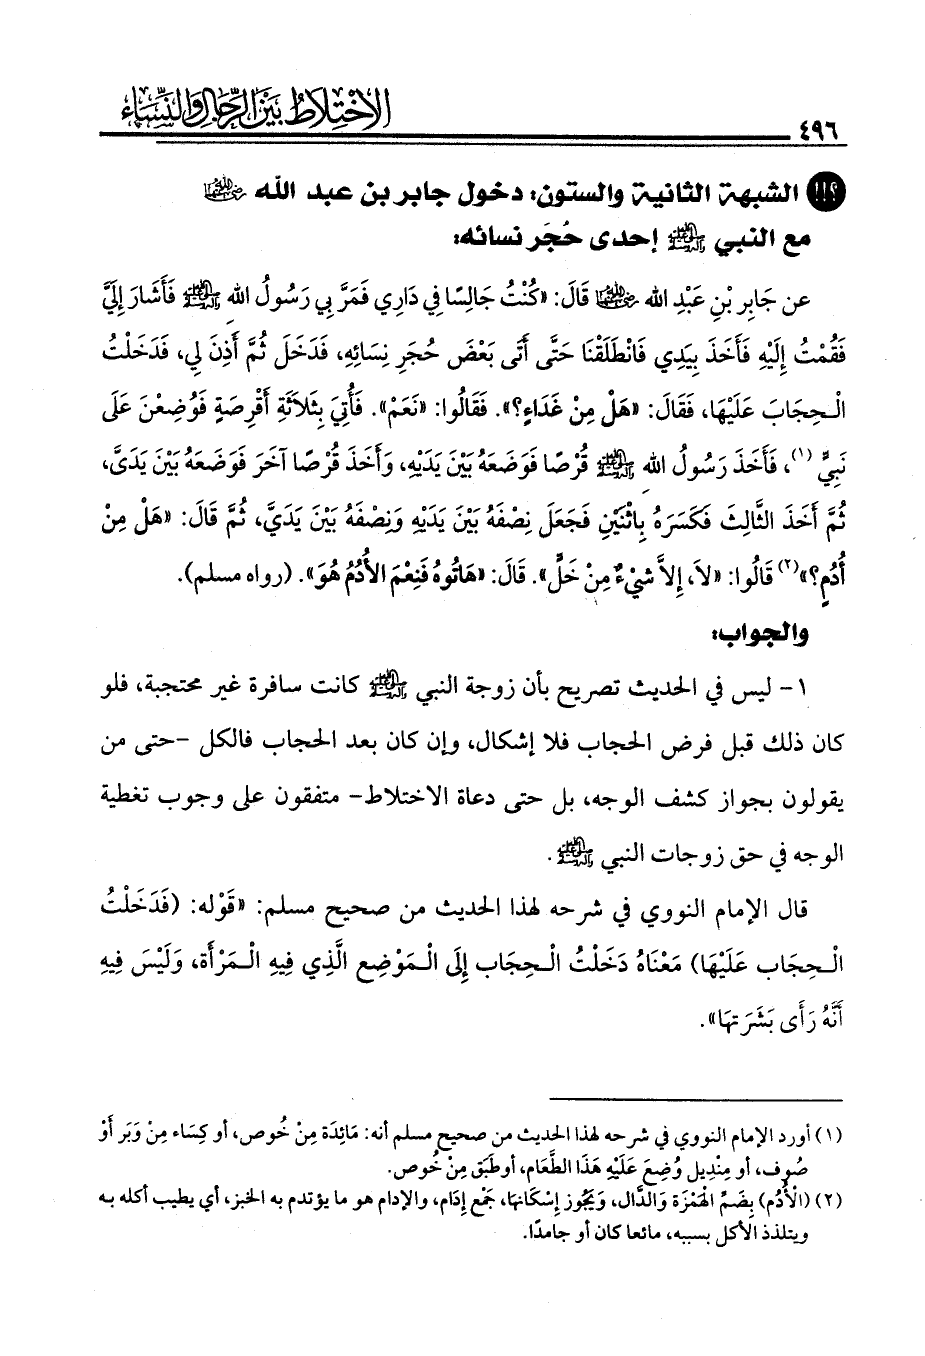 الاختلاط بين الرجال والنساء
٤٩٦
؟!! الشبهة الثانية والستون: دخول جابر بن عبد الله رضي الله عنهما
مع النبي ﷺ إحدى حُجَر نسائه:
عن جَابِر بْنِ عَبْدِ الله رضي الله عنهما قَالَ: «كُنْتُ جَالِسًا فِي دَارِي فَمَرَّ بِي رَسُولُ اللهِ ﷺ فَأَشَارَ إِلَيَّ
فَقُمْتُ إِلَيْهِ فَأَخَذَ بِيَدِي فَانْطَلَقْنَا حَتَّى أَتَى بَعْضَ حُجَرِ نِسَائِهِ، فَدَخَلَ ثُمَّ أَذِنَ لِي، فَدَخَلْتُ
الْـحِجَابَ عَلَيْهَا، فَقَالَ: «هَلْ مِنْ غَدَاءٍ؟». فَقَالُوا: «نَعَمْ». فَأُتِيَ بِثَلَاثَةِ أَقْرِصَةٍ فَوُضِعْنَ عَلَى
نَبِيٍّ (١)، فَأَخَذَ رَسُولُ اللهِ ﷺ قُرْصًا فَوَضَعَهُ بَيْنَ يَدَيْهِ، وَأَخَذَ قُرْصًا آخَرَ فَوَضَعَهُ بَيْنَ يَدَيَّ،
ثُمَّ أَخَذَ الثَّالِثَ فَكَسَرَهُ بِاثْنَيْنِ فَجَعَلَ نِصْفَهُ بَيْنَ يَدَيْهِ وَنِصْفَهُ بَيْنَ يَدَيَّ، ثُمَّ قَالَ: «هَلْ مِنْ
أُدُمٍ؟»(٢) قَالُوا: «لَا، إِلاَّ شَيْءٌ مِنْ خَلٍّ». قَالَ: «هَاتُوهُ فَنِعْمَ الأُدُمُ هُوَ». (رواه مسلم).
والجواب:
١- ليس في الحديث تصريح بأن زوجة النبي ﷺ كانت سافرة غير محتجبة، فلو
كان ذلك قبل فرض الحجاب فلا إشكال، وإن كان بعد الحجاب فالكل -حتى من
يقولون بجواز كشف الوجه، بل حتى دعاة الاختلاط- متفقون على وجوب تغطية
الوجه في حق زوجات النبي ﷺ.
قال الإمام النووي في شرحه لهذا الحديث من صحيح مسلم: «قَوْله: (فَدَخَلْتُ
الْـحِجَاب عَلَيْهَا) مَعْنَاهُ دَخَلْتُ الْـحِجَاب إِلَى الْـمَوْضِع الَّذِي فِيهِ الْـمَرْأَة، وَلَيْسَ فِيهِ
أَنَّهُ رَأَى بَشَرَتهَا».
(١) أورد الإمام النووي في شرحه لهذا الحديث من صحيح مسلم أنه: مَائِدَة مِنْ خُوص، أو كِسَاء مِنْ وَبَر أَوْ
صُوف، أو مِنْدِيل وُضِعَ عَلَيْهِ هَذَا الطَّعَام، أو طَبَق مِنْ خُوص.
(٢) (الْأُدُم) بِضَمِّ الْهَمْزَة وَالدَّال، وَيَجُوز إِسْكَانهَا، جَمْع إِدَام، والإدام هو ما يؤتدم به الخبز، أي يطيب أكله به
ويتلذذ الأكل بسببه، مائعا كان أو جامدًا.